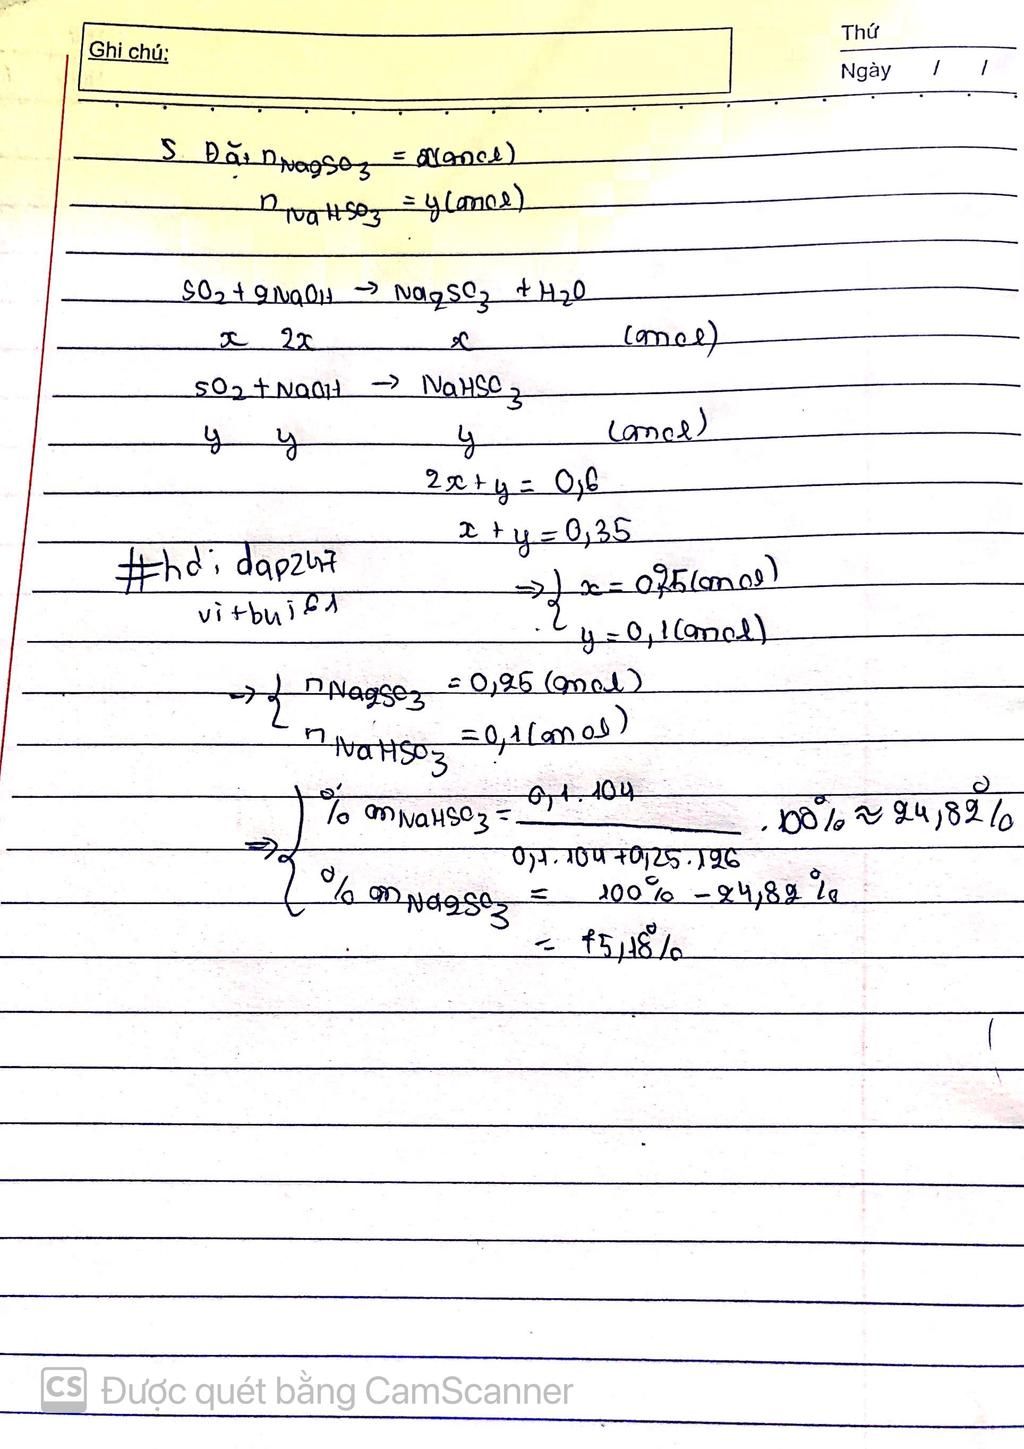 Ghi chú:
Thứ
Ngày / /
5. Đặt nNa2SO3 = x(mol)
nNaHSO3 = y(mol)
SO2 + 2NaOH → Na2SO3 + H2O
x 2x x (mol)
SO2 + NaOH → NaHSO3
y y y (mol)
2x + y = 0,6
x + y = 0,35
#hoidap247
vitbui61
=> { x = 0,25(mol)
y = 0,1(mol)
=> { nNa2SO3 = 0,25 (mol)
nNaHSO3 = 0,1(mol)
=> { % mNaHSO3 = 0,1.104 / 0,1.104 + 0,25.126 . 100% ≈ 24,82%
% mNa2SO3 = 100% - 24,82%
= 75,18%
CS Được quét bằng CamScanner